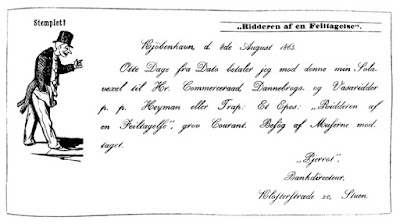 Stemplet!
„Ridderen af en Feiltagelse“.
Kjöbenhavn, d. 8de August 1863.
Otte Dage fra Dato betaler jeg mod denne min Sola-
vexel til Hr. Commerceraad, Dannebrogs. og Vasaridder
p. p. Heyman eller Trap: Et Epos: „Ridderen af
en Feiltagelse“, grov Courant. Beløg af Muserne mod-
taget.
„Pjerrot“,
Bankdirecteur,
Klosterstræde 20, Stuen.